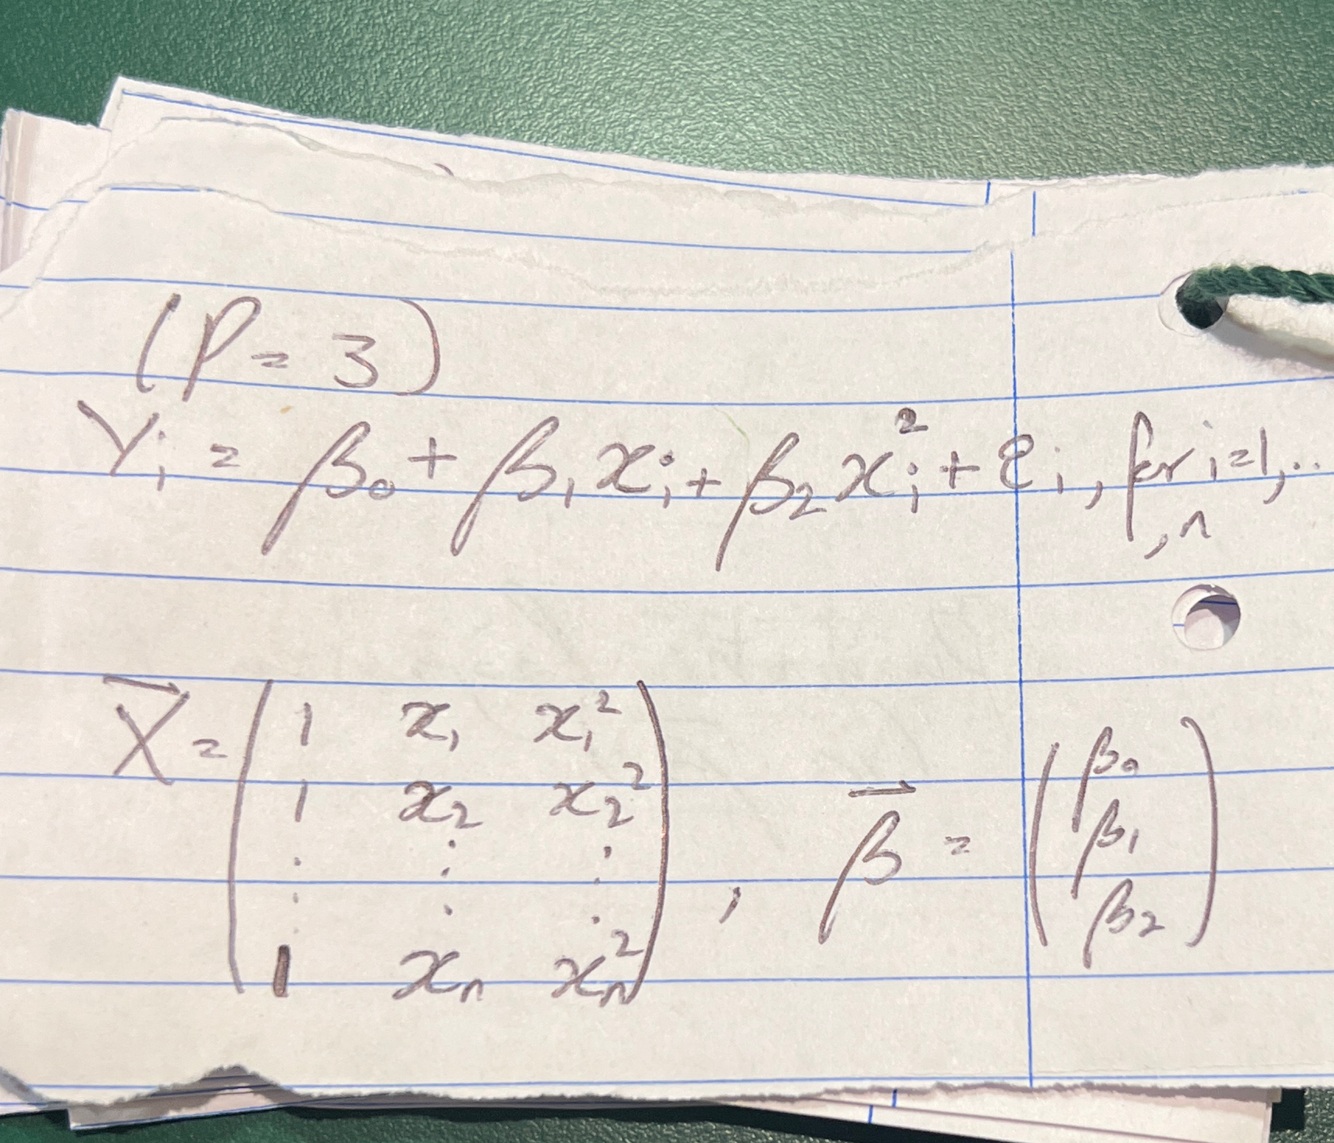 (P = 3)
Yᵢ = β₀ + β₁xᵢ + β₂xᵢ² + εᵢ, for i=1,..
,n
X⃗ = ( 1 x₁ x₁²
1 x₂ x₂²
⋮ ⋮ ⋮
1 xₙ xₙ² ) , β⃗ = ( β₀
β₁
β₂ )